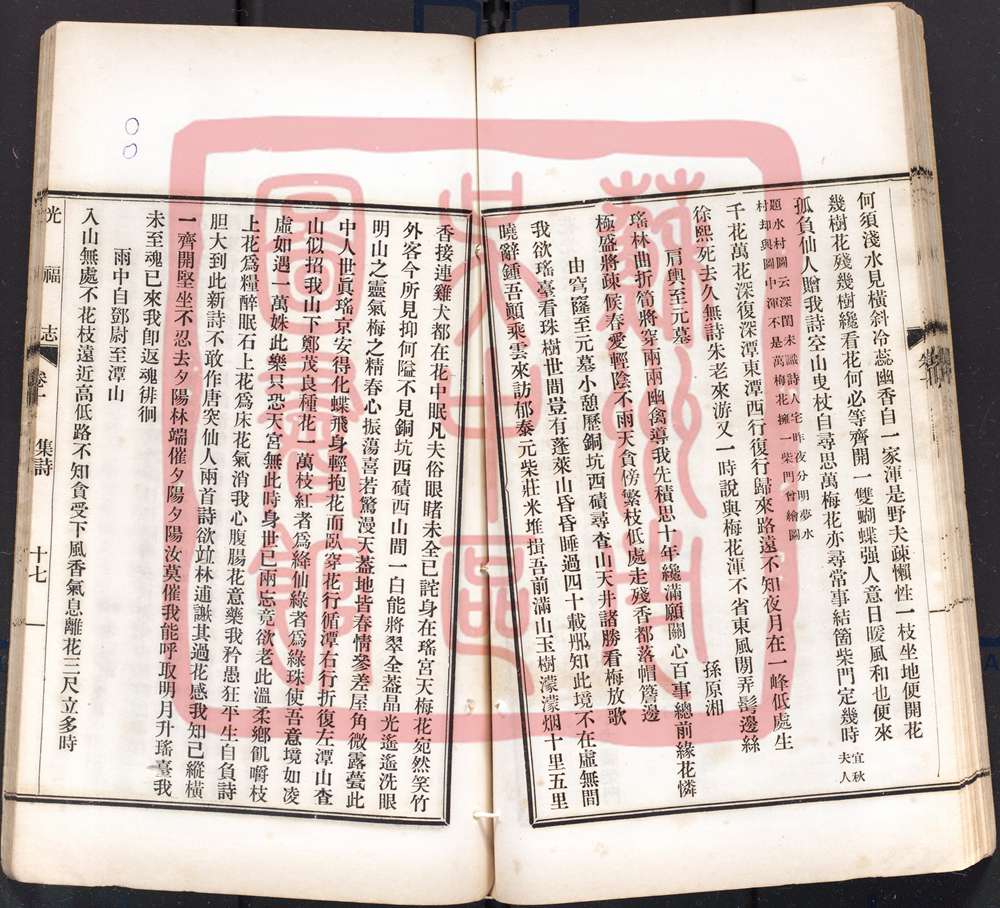 何須淺水見橫斜冷蕊幽香自一家渾是野夫疎懶性一枝坐地便開花
幾樹花殘幾樹纔看花何必等齊開一雙蝴蝶强人意日暖風和也便來
孤負仙人贈我詩空山曳杖自尋思萬梅花亦尋常事結箇柴門定幾時
宜秋
夫人
題水村圖云深閨未識詩人宅昨夜分明夢水
村却與圖中渾不是萬梅花擁一柴門曾繪圖
千花萬花深復深東潭西行復行歸來路遠不知夜月在一峰低處生
徐熙死去久無詩朱老來游又一時說與梅花渾不省東風閒弄鬂邊絲
肩輿至元墓
孫原湘
瑤林曲折筍將穿兩兩幽禽導我先積思十年纔滿願關心百事總前緣花憐
極盛將疎候春愛輕陰不雨天貪傍繁枝低處走殘香都落帽簷邊
由穹窿至元墓小憩歷銅坑西磧尋查山天井諸勝看梅放歌
我欲瑤臺看珠樹世間豈有蓬萊山昏昏睡過四十載那知此境不在虛無間
曉辭鍾吾顚乘雲來訪郁泰元柴莊米堆揖吾前滿山玉樹濛濛烟十里五里
香接連雞犬都在花中眠凡夫俗眼睹未全已詫身在瑤宮天梅花宛然笑竹
外客今所見抑何隘不見銅坑西磧西山間一白能將翠全葢晶光遙遙洗眼
明山之靈氣梅之精春心振蕩喜若驚漫天蓋地皆春情參差屋角微露甍此
中人世眞瑤京安得化蝶飛身輕抱花而臥穿花行循潭右行折復左潭山查
山似招我山下鄭茂良種花一萬枝紅者爲絳仙綠者爲綠珠使吾意境如凌
虛如遇一萬姝此樂只恐天宮無此時身世已兩忘竟欲老此溫柔鄉飢嚼枝
上花爲糧醉眠石上花爲床花氣消我心腹腸花意藥我矜愚狂平生自負詩
胆大到此新詩不敢作唐突仙人兩首詩欲竝林逋謝其過花感我知己縱橫
一齊開堅坐不忍去夕陽林端催夕陽夕陽汝莫催我能呼取明月升瑤臺我
未至魂已來我卽返魂徘徊
雨中自鄧尉至潭山
入山無處不花枝遠近高低路不知貪受下風香氣息離花三尺立多時
光福志
卷十
集詩
十七